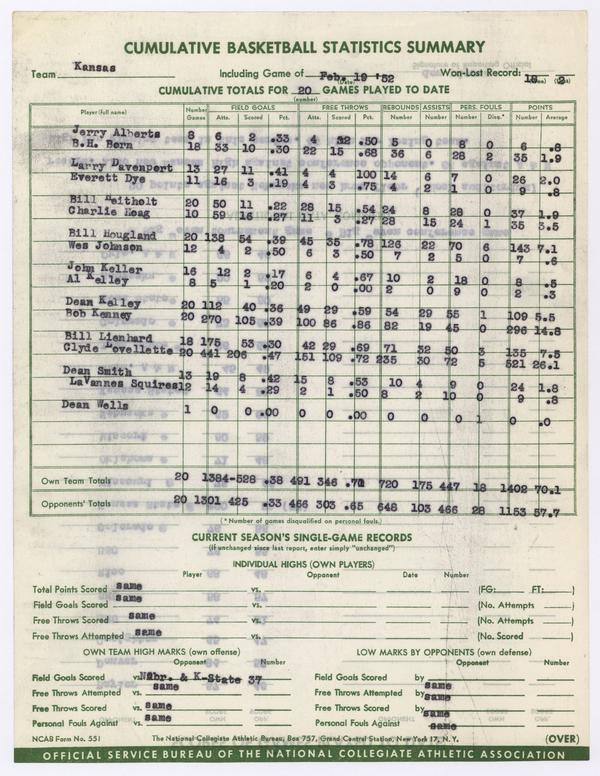 CUMULATIVE BASKETBALL STATISTICS SUMMARY
Team Kansas Including Game of Feb. 19 '52 (Date) Won-Lost Record: 18 (Won) 2 (Lost)
CUMULATIVE TOTALS FOR 20 GAMES PLAYED TO DATE
(number)
Player (full name) Number Games FIELD GOALS Atts. Scored Pct. FREE THROWS Atts. Scored Pct. REBOUNDS Number ASSISTS Number PERS. FOULS Number Disq.* POINTS Number Average
Jerry Alberts 8 6 2 .33 4 2 .50 5 0 8 0 6 .8
B.H. Born 18 33 10 .30 22 15 .68 36 6 28 2 35 1.9
Larry Davenport 13 27 11 .41 4 4 100 14 6 7 0 26 2.0
Everett Dye 11 16 3 .19 4 3 .75 4 2 1 0 9 .8
Bill Heitholt 20 50 11 .22 28 15 .54 24 8 28 0 37 1.9
Charlie Hoag 10 59 16 .27 11 3 .27 28 15 24 1 35 3.5
Bill Hougland 20 138 54 .39 45 35 .78 126 22 70 6 143 7.1
Wes Johnson 12 4 2 .50 6 3 .50 7 2 5 0 7 .6
John Keller 16 12 2 .17 6 4 .67 10 2 18 0 8 .5
Al Kelley 8 5 1 .20 2 0 .00 2 0 9 0 2 .3
Dean Kelley 20 112 40 .36 49 29 .59 54 29 55 1 109 5.5
Bob Kenney 20 270 105 .39 100 86 .86 82 19 45 0 296 14.8
Bill Lienhard 18 175 53 .30 42 29 .69 71 32 50 3 135 7.5
Clyde Lovellette 20 441 206 .47 151 109 .72 235 30 72 5 521 26.1
Dean Smith 13 19 8 .42 15 8 .53 10 4 9 0 24 1.8
LaVannes Squires 12 14 4 .29 2 1 .50 8 2 10 0 9 .8
Dean Wells 1 0 0 .00 0 0 .00 0 0 0 1 0 .0
Own Team Totals 20 1384-528 .38 491 346 720 175 447 18 1402 70.1
Opponents' Totals 20 1301 425 .33 466 303 .65 648 103 466 28 1153 57.7
(* Number of games disqualified on personal fouls.)
CURRENT SEASON'S SINGLE-GAME RECORDS
(if unchanged since last report, enter simply "unchanged")
INDIVIDUAL HIGHS (OWN PLAYERS)
Player Opponent Date Number
Total Points Scored same vs. (FG: FT: )
Field Goals Scored same vs. (No. Attempts )
Free Throws Scored same vs. (No. Attempts )
Free Throws Attempted same vs. (No. Scored )
OWN TEAM HIGH MARKS (own offense) LOW MARKS BY OPPONENTS (own defense)
Opponent Number Opponent Number
Field Goals Scored vs. Nebr. & K-State 37 Field Goals Scored by same
Free Throws Attempted vs. same Free Throws Attempted by same
Free Throws Scored vs. same Free Throws Scored by same
Personal Fouls Against vs. same Personal Fouls Against same
NCAB Form No. 551 The National Collegiate Athletic Bureau, Box 757, Grand Central Station, New York 17, N. Y. (OVER)
OFFICIAL SERVICE BUREAU OF THE NATIONAL COLLEGIATE ATHLETIC ASSOCIATION